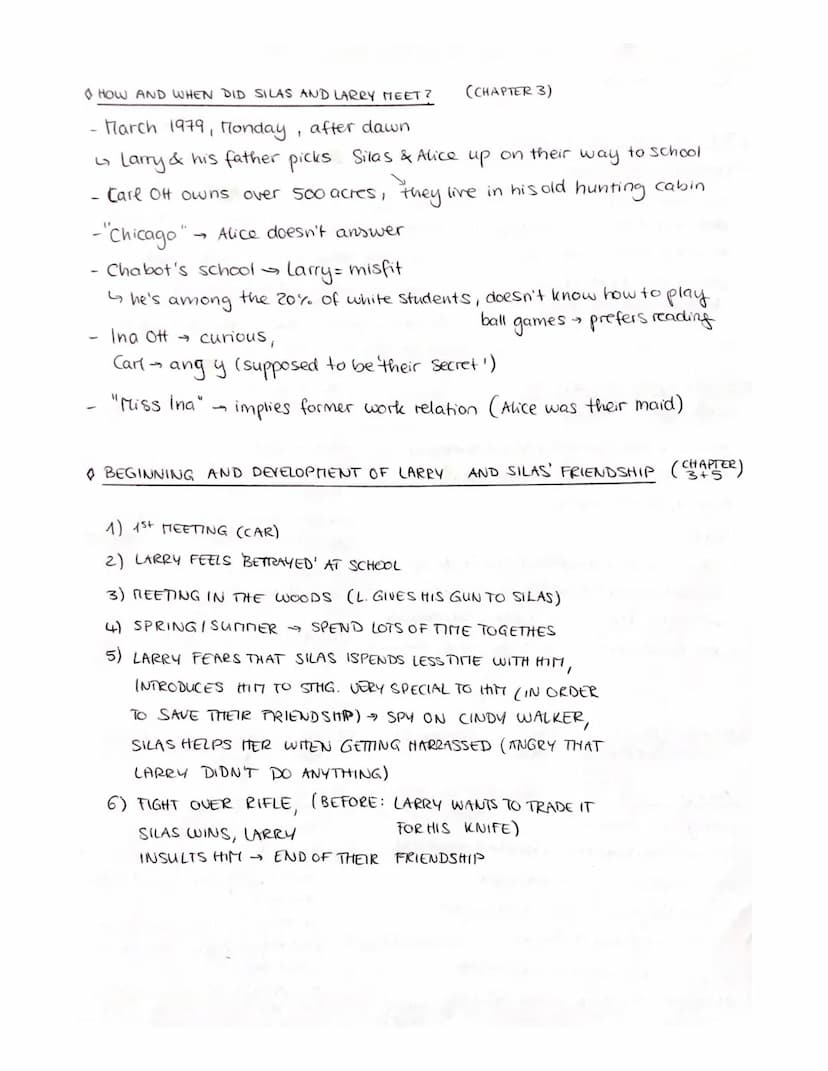 ◊ HOW AND WHEN DID SILAS AND LARRY MEET? (CHAPTER 3)
- March 1979, Monday, after dawn
↳ Larry & his father picks Silas & Alice up on their way to school
- Carl Ott owns over 500 acres, they live in his old hunting cabin
- "Chicago" → Alice doesn't answer
- Chabot's school → Larry = misfit
↳ he's among the 20% of white students, doesn't know how to play
ball games → prefers reading
- Ina Ott → curious,
Carl → ang y (supposed to be 'their secret')
- "Miss Ina" → implies former work relation (Alice was their maid)
◊ BEGINNING AND DEVELOPMENT OF LARRY AND SILAS' FRIENDSHIP (CHAPTER 3+5)
1) 1st MEETING (CAR)
2) LARRY FEELS 'BETRAYED' AT SCHOOL
3) MEETING IN THE WOODS (L. GIVES HIS GUN TO SILAS)
4) SPRING/SUMMER → SPEND LOTS OF TIME TOGETHES
5) LARRY FEARS THAT SILAS ISPENDS LESS TIME WITH HIM,
INTRODUCES HIM TO STHG. VERY SPECIAL TO HIM (IN ORDER
TO SAVE THEIR FRIENDSHIP) → SPY ON CINDY WALKER,
SILAS HELPS HER WHEN GETTING HARRASSED (ANGRY THAT
LARRY DIDN'T DO ANYTHING)
6) FIGHT OVER RIFLE, (BEFORE: LARRY WANTS TO TRADE IT
SILAS WINS, LARRY FOR HIS KNIFE)
INSULTS HIM → END OF THEIR FRIENDSHIP